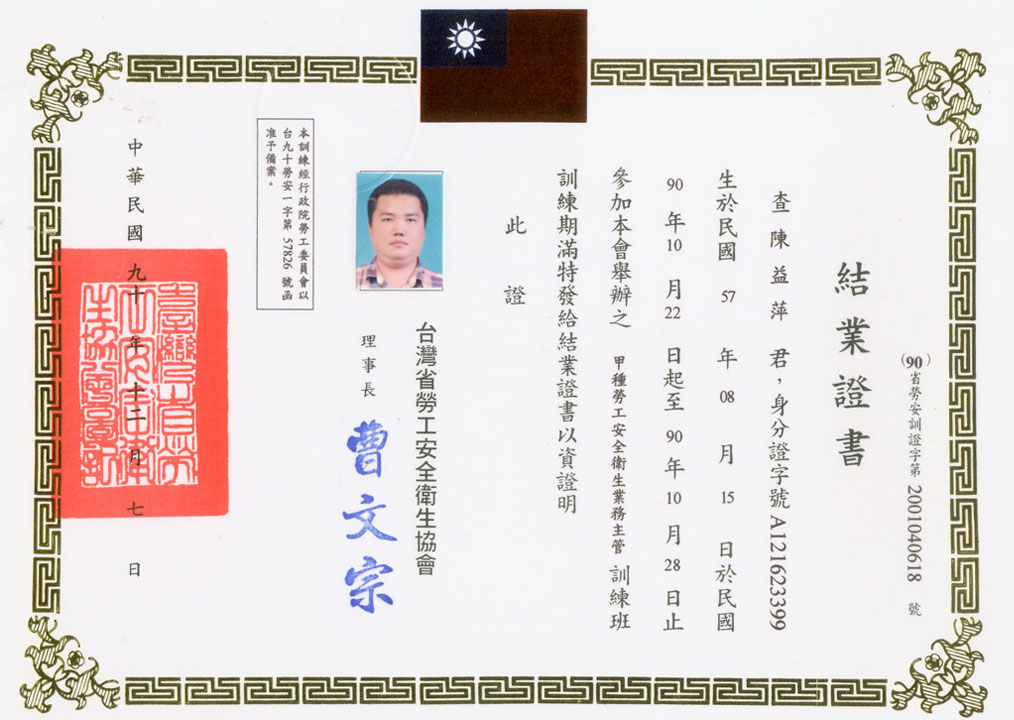 結業證書
(90)省勞安訓證字第 2001040618 號
查 陳益萍 君，身分證字號 A121623399
生於民國 57 年 08 月 15 日於民國
90 年 10 月 22 日起至 90 年 10 月 28 日止
參加本會舉辦之 甲種勞工安全衛生業務主管 訓練班
訓練期滿特發給結業證書以資證明
此證
台灣省勞工安全衛生協會
理事長 曹文宗
本訓練經行政院勞工委員會以
台九十勞安一字第 57826 號函
准予備案。
中華民國 九十 年 十二 月 七 日